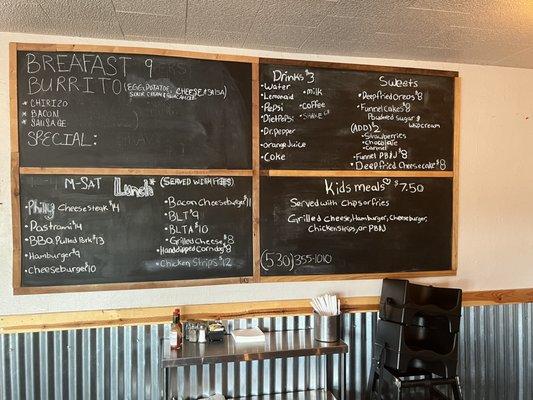 BREAKFAST 9
BURRITO (EGG, POTATOE, CHEESE & SALSA)
SOUR CREAM & GUACAMOLE
* CHIRIZO
* BACON
* SAUSAGE
SPECIAL:
Drinks $3
• Water
• Lemonade
• Pepsi
• Diet Pepsi
• Dr. pepper
• orange Juice
• Coke
• milk
• coffee
• SHAKE
Sweets
• Deep fried oreos $8
• Funnel cake $8
Powdered Sugar
(ADD) $2
whip cream
• Strawberries
• Chocolate
• Caramel
• Funnel PB&J $8
• Deep fried Cheesecake $8
M-SAT Lunch (SERVED WITH FRY'S)
• Philly Cheese steak $14
• Pastrami $14
• BBQ Pulled Pork $13
• Hamburger $9
• cheese burger $10
• Bacon cheese burger $11
• BLT $9
• BLTA $10
• Grilled Cheese $8
• Hand dipped Corn dog $8
• Chicken Strips $12
Kids meals $7.50
Served with chips or fries
Grilled cheese, Hamburger, Cheeseburger,
Chicken Strips, or PB&J
(530) 355-1010